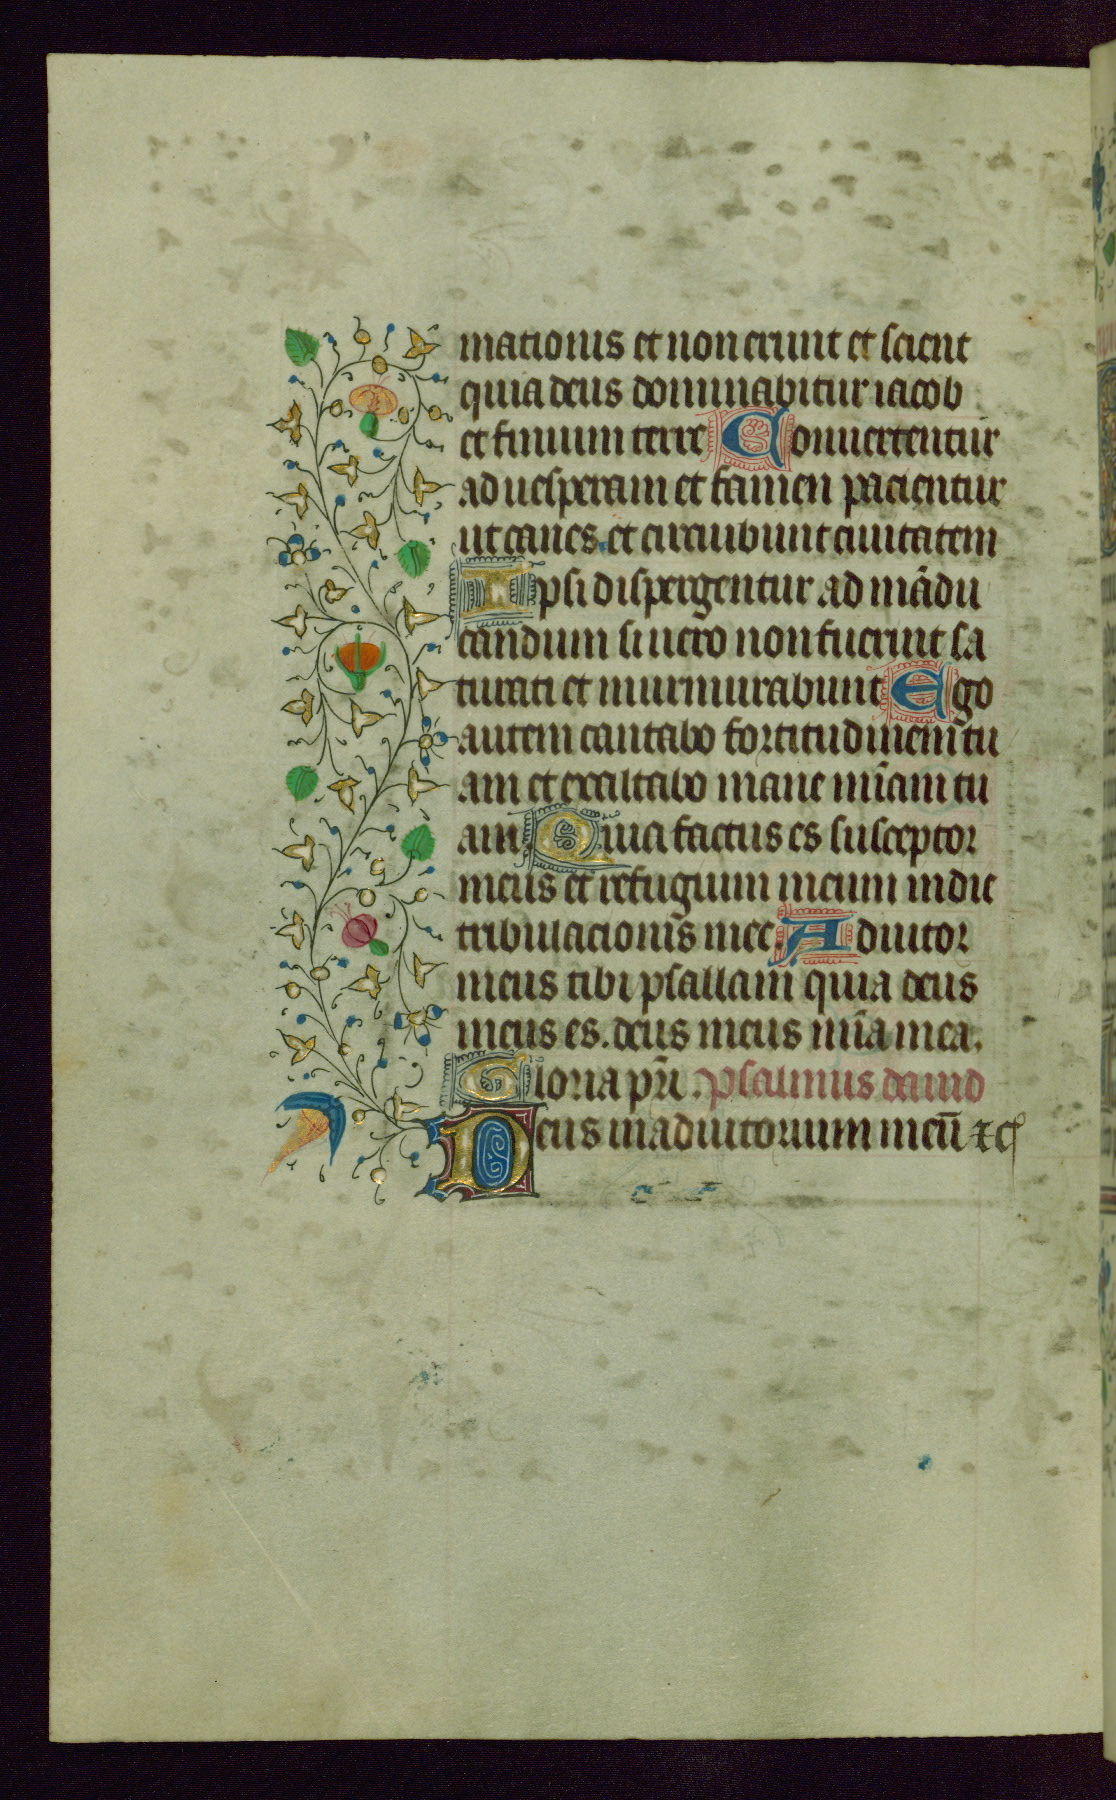 mationis et non erunt et scient
quia deus dominabitur iacob
et finium terre Conuertentur
ad uesperam et famen pacientur
ut canes. et circuibunt ciuitatem
Ipsi dispergentur ad mādu
candum si uero non fuerint sa
turati et murmurabunt Ego
autem cantabo fortitudinem tu
am et exaltabo mane mīam tu
am. Quia factus es susceptor
meus et refugium meum in die
tribulacionis mee. Adiutor
meus tibi psallam quia deus
meus es. deus meus mīa mea.
Gloria pr̄i. psalmus dauid
Deus in adiutorium meū